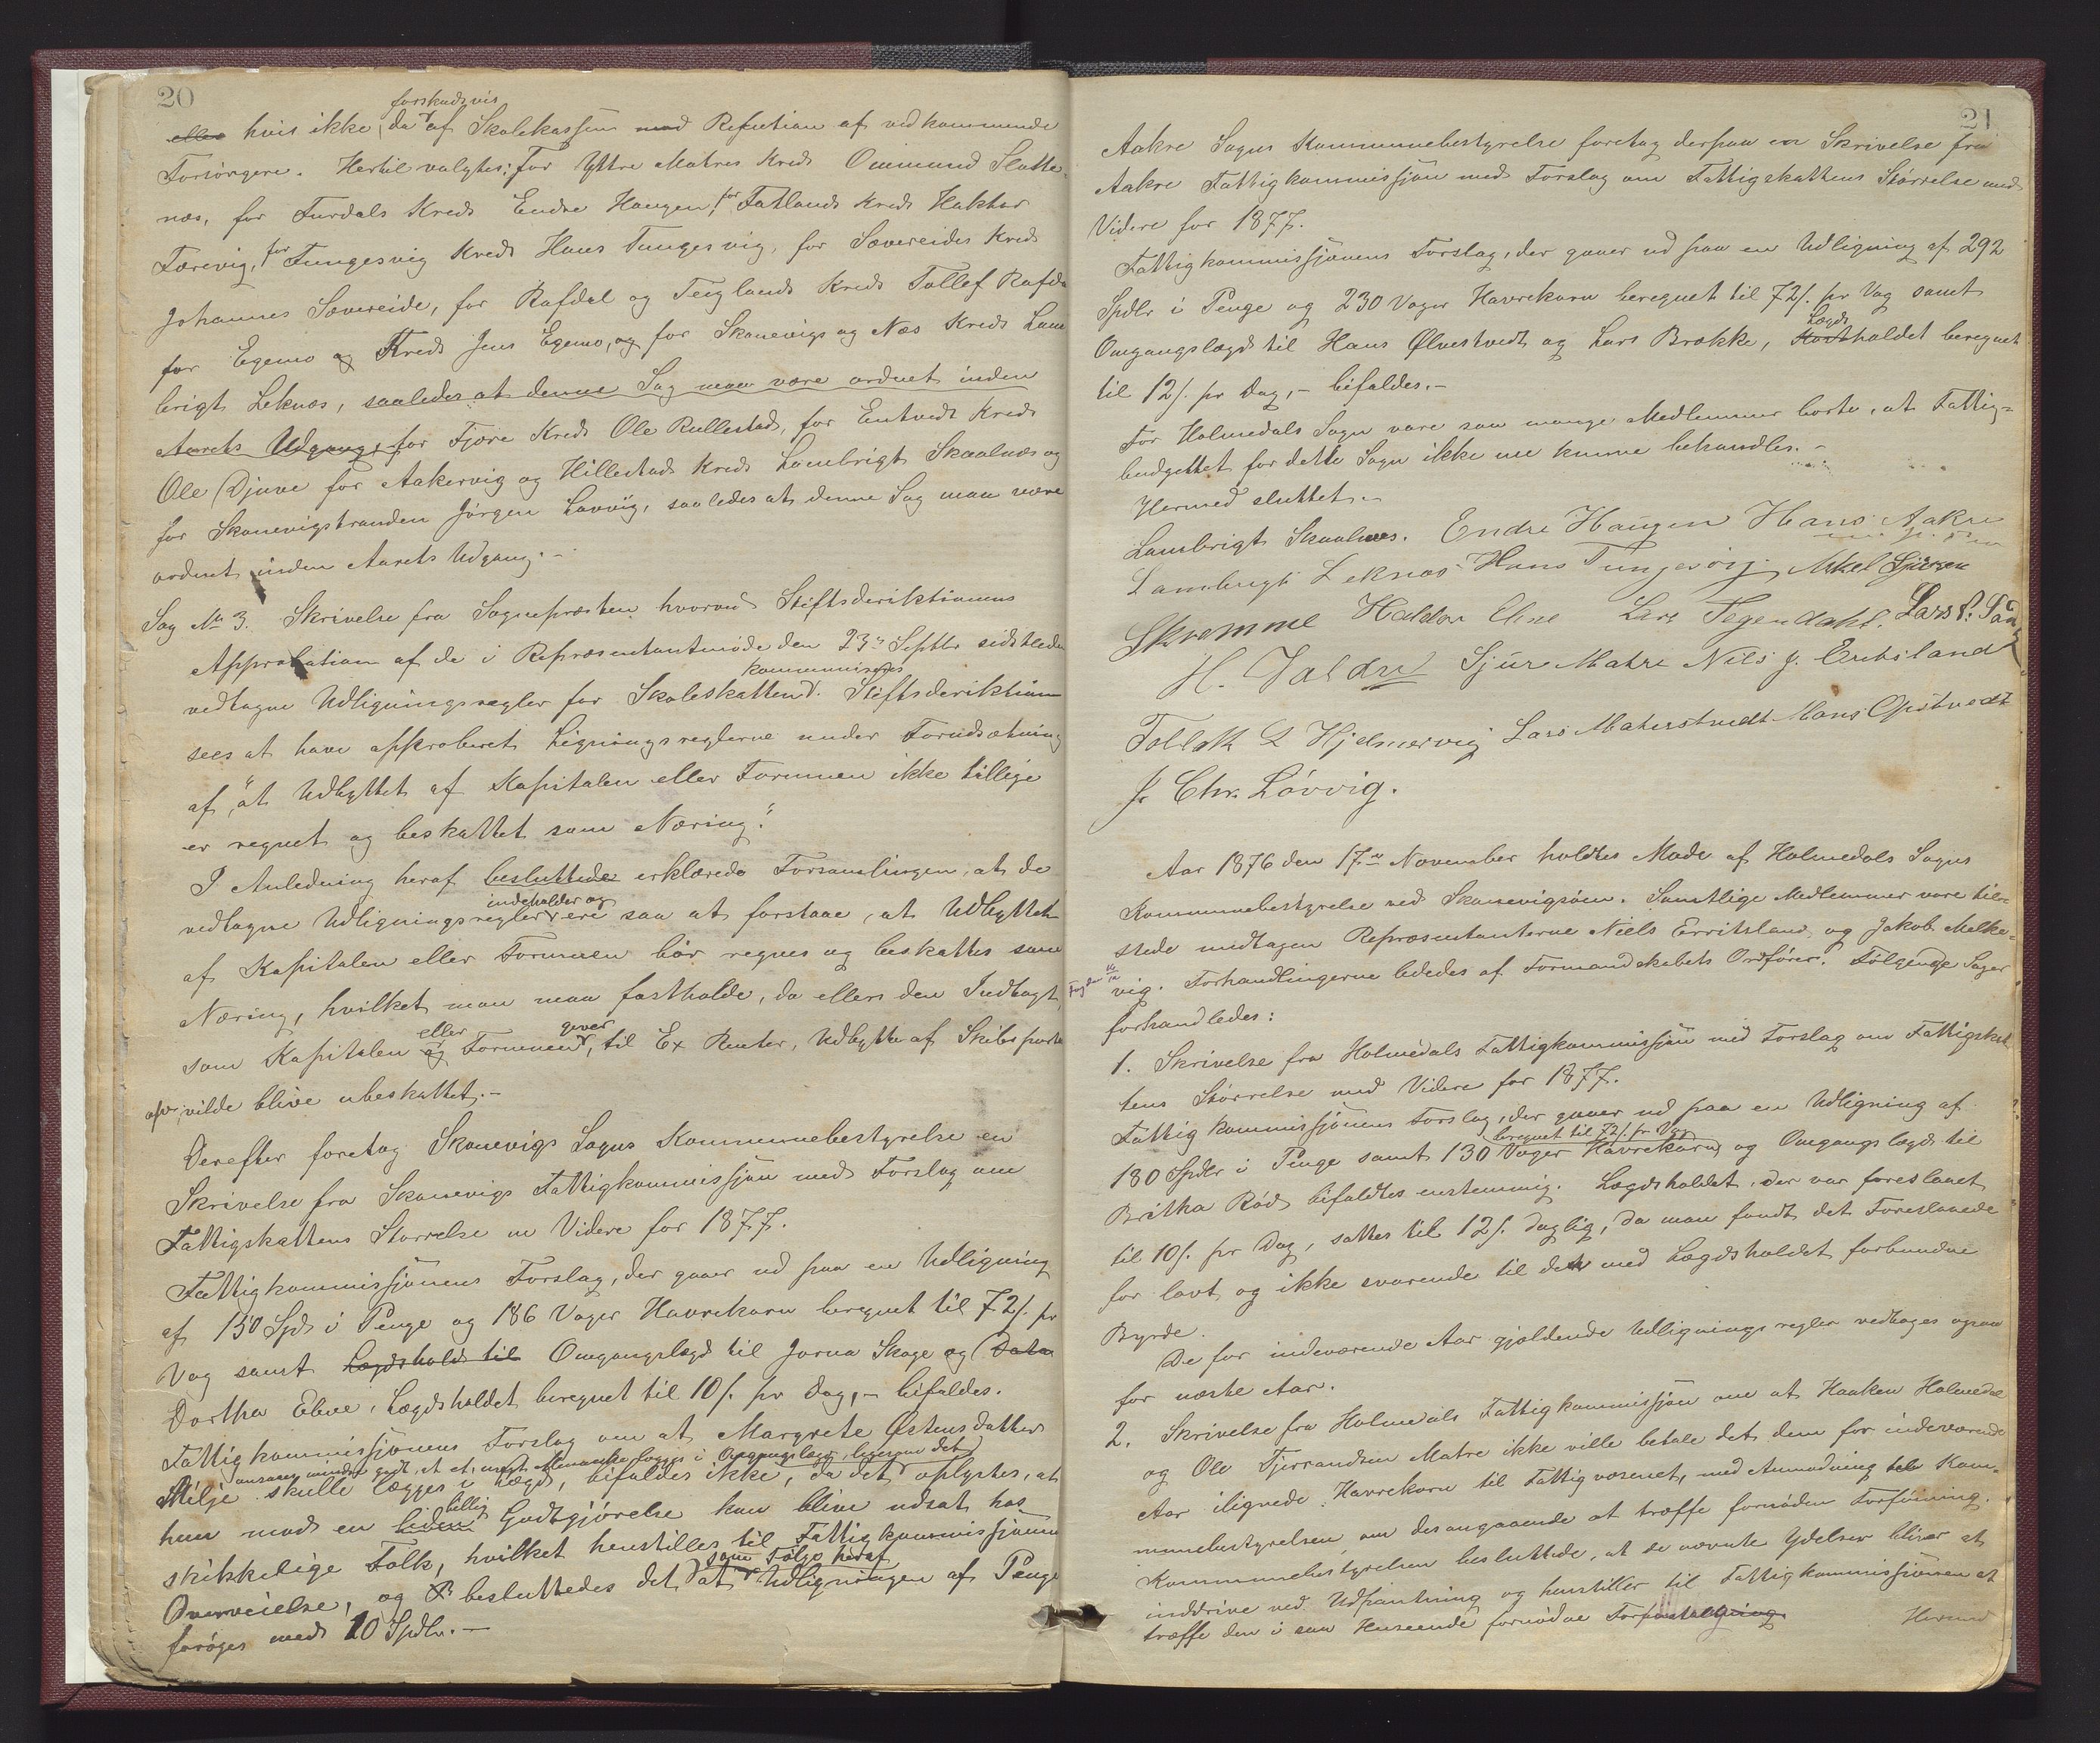 20
forskudsvis
eller hvis ikke, da af Skolekassen mod Refution af vedkommende
Forsörgere. Hertil valgtes: For Yttre Matres Kreds Ommund Slotte-
næs, for Furdals Kreds Endre Haugen, for Fatlands Kreds Haktor
Færevig, for Tungesvig Kreds Hans Tungesvig, for Sævereides Kreds
Johannes Sævereide, for Rafdal og Teiglands Kreds Tollef Rafda
for Egemo og Kreds Jens Egemo, og for Skonevigs og Næs Kreds Lam
brigt Leknæs, saaledes at denne Sag maa være ordnet inden
Aarets Udgang, for Fjære Kreds Ole Rullestad, for Entvedt Kreds
Ole Djuve for Aakervig og Hillestad Kreds Lambrigt Skaalnæs og
for Skonevigstranden Jörgen Lavvig, saaledes at denne Sag maa være
ordnet inden Aarets Udgang.-
Sag No 3. Skrivelse fra Sognepresten hvorved Stiftsdirektionens
Approbation af de i Repræsentantmöde den 23de Septbr sidstleden
kommuniseres
vedtagne Udligningsregler for Skoleskatten. Stiftsdirektion
sees at have approberet Ligningsreglerne under Forudsætning
af, "at Udbyttet af Kapitalen eller Formuen ikke tillige
er regnet og beskattet som Næring."
I Anledning heraf besluttede erklærede Forsamlingen, at de
indeholder og
vedtagne Udligningsregler ere saa at forstaae, at Udbyttet
af Kapitalen eller Formuen bör regnes og beskattes som
Næring, hvilket man maa fastholde, da ellers den Indtægt,
eller giver
som Kapitalen og Formuen, til Ex Renter, Udbytte af Skibsparter
osv, vilde blive ubeskattet.-
Derefter foretog Skonevigs Sogns Kommunebestyrelse en
Skrivelse fra Skonevigs Fattigkommissjon med Forslag om
Fattigskattens Storrelse m Videre for 1877.
Fattigkommissjonens Forslag, der gaaer ud paa en Udligning
af 150 Spd i Penge og 186 Voger Havrekorn beregnet til 72/. pr
Vog samt Lægdshold til Omgangslægd til Jorna Skoge og
Dorthea Ebne, Lægdsholdet beregnet til 10/. pr Dag,- bifaldes.
Fattigkommissjonens Forslag om at Margrete Østensdatter
ansaaes mindre godt, at et ungt Menneske lægges i Omgangslægd, ligesom det
Milje skulle lægges i Lægd, bifaldes ikke, da det oplystes, at
billig
hun mod en liden Godtgjörelse kan blive udsat hos
skikkelige Folk, hvilket henstilles til Fattigkommissjonens
som Fölge heraf
Overveielse, og besluttedes det at Udligningen af Penge
foröges med 10 Spdlr.-
21
Aakre Sogns Kommunebestyrelse foretog derpaa en Skrivelse fra
Aakre Fattigkommissjon med Forslag om Fattigskattens Störrelse med
Videre for 1877.
Fattigkommissjonens Forslag, der gaaer ud paa en Udligning af 292
Spdlr i Penge og 230 Voger Havrekorn beregnet til 72/. pr Vog samt
Lægds
Omgangslægd til Hans Ølvestvedt og Lars Brække, Kostholdet beregnet
til 12/. pr Dag,- bifaldes.-
For Holmedals Sogn vare saa mange Medlemmer borte, at Fattig-
budgettet for dette Sogn ikke nu kunne behandles.-
Hermed sluttet.-
Lambrigt Skaalnæs. Endre Haugen Hans Aakre
Lambrigt Leknæs Hans Tungesvig Mikel Sjursen
Skromme Haldor Ebne Lars Tegendahl. Lars
H. Valdre Sjur Matre Nils J. Eriksland
Tollak L Hjelmervig Lars Materstvedt Mons Opstvedt
J. Chr. Lövvig.
Aar 1876 den 17de November holdtes Mode af Holmedals Sogns
Kommunebestyrelse ved Skonevigsöen. Samtlige Medlemmer vare til-
stede undtagen Repræsentanterne Niels Erritsland og Jakob Melke-
vig. Forhandlingerne lededes af Formandskabets Ordförer. Fölgende Sager
forhandledes:
1. Skrivelse fra Holmedals Fattigkommissjon med Forslag om Fattigskat
tens Störrelse med Videre for 1877.
Fattigkommissjonens Forslag, der gaaer ud paa en Udligning af
beregnet til 72/. pr Vog
180 Spdlr i Penge samt 130 Voger Havrekorn, og Omgangslægd til
Britha Röd bifaldtes enstemmig. Lægdsholdet, der var foreslaaet
til 10/. pr Dag, sattes til 12/. daglig, da man fandt det Foreslaaede
for lavt og ikke svarende til den med Lægdsholdet forbundne
Byrde.
De for indeværende Aar gjældende Udligningsregler vedtages ogsaa
for næste Aar.
2. Skrivelse fra Holmedals Fattigkommissjon om at Haaken Holmedal
og Ole Tjerrandsen Matre ikke ville betale det dem for indeværende
Aar ilignede Havrekorn til Fattigvæsenet, med Anmodning til Kom-
munebestyrelsen om desangaaende at træffe fornöden Forföining.
Kommunebestyrelsen besluttede, at de nævnte Ydelser bliver at
inddrive ved Udpantning og henstiller til Fattigkommissjonen at
træffe den i saa Henseende fornödne
Hermed